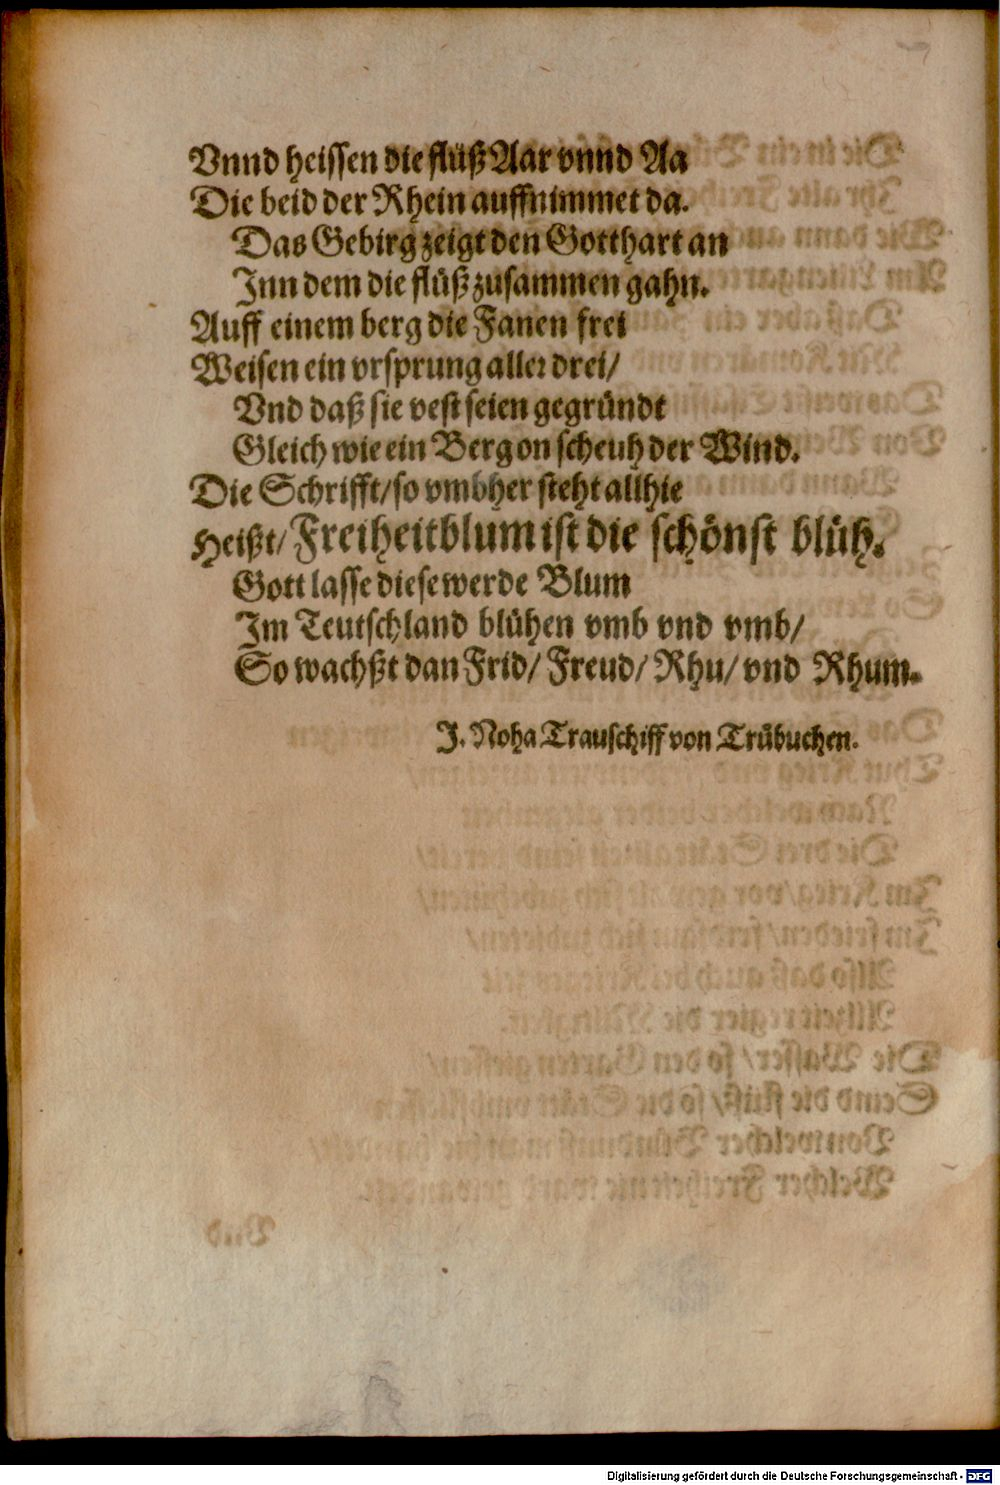 Vnnd heissen die flüß Aar vnnd Aa
Die beid der Rhein auffnimmet da.
Das Gebirg zeigt den Gotthart an
Inn dem die flüß zusammen gahn.
Auff einem berg die Fanen frei
Weisen ein vrsprung aller drei/
Vnd daß sie vest seien gegründt
Gleich wie ein Berg on scheuh der Wind.
Die Schrifft/ so vmbher steht allhie
Heißt/ Freiheitblum ist die schönst blüh.
Gott lasse diese werde Blum
Im Teutschland blühen vmb vnd vmb/
So wachßt dan Frid/ Freud/ Rhu/ vnd Rhum.
J. Noha Trauschiff von Trübuchen.
Digitalisierung gefördert durch die Deutsche Forschungsgemeinschaft - DFG